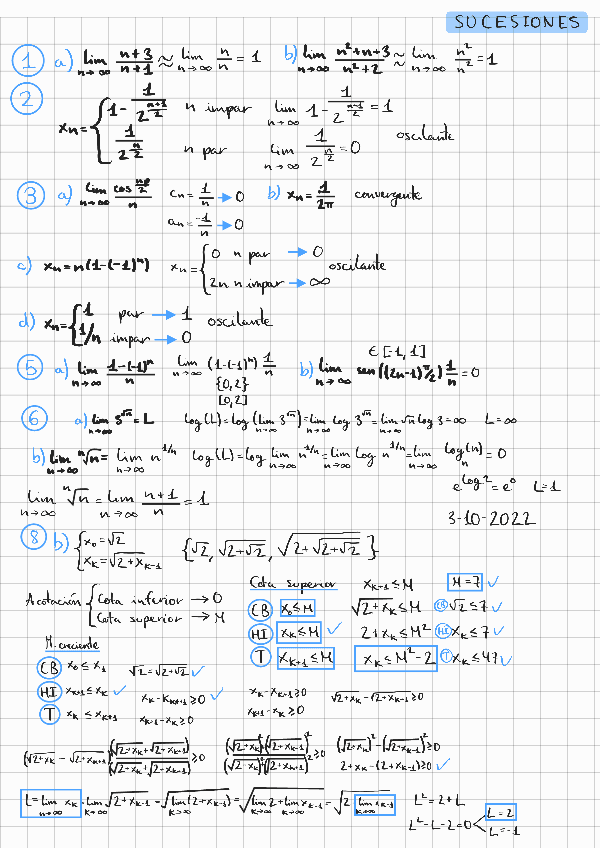 SUCESIONES
① a) lim n→∞ (n+3)/(n+1) ≈ lim n→∞ n/n = 1 b) lim n→∞ (n²+n+3)/(n²+2) ≈ lim n→∞ n²/n² = 1
② xn = { 1 - 1/2^((n+1)/2) n impar lim n→∞ 1 - 1/2^((n-1)/2) = 1
1/2^(n/2) n par lim n→∞ 1/2^(n/2) = 0 oscilante
③ a) lim n→∞ cn = 1/n → 0 b) xn = 1/2π convergente
an = -1/n → 0
c) xn = n(1-(-1)^n) xn = { 0 n par → 0
2n n impar → ∞ oscilante
d) xn = { 1 par → 1
1/n impar → 0 oscilante
⑤ a) lim n→∞ (1-(-1)^n)/n lim n→∞ (1-(-1)^n) 1/n b) lim n→∞ sen((2n-1)π/2) 1/n = 0
∈ [-1,1]
{0,2}
[0,2]
⑥ a) lim n→∞ 3^√n = L log(L) = log(lim n→∞ 3^√n) = lim n→∞ log 3^√n = lim n→∞ √n log 3 = ∞ L = ∞
b) lim n→∞ ⁿ√n = lim n→∞ n^(1/n) log(L) = log lim n→∞ n^(1/n) = lim n→∞ log n^(1/n) = lim n→∞ log(n)/n = 0
e^log L = e⁰ L=1
lim n→∞ ⁿ√n = lim n→∞ (n+1)/n = 1
3-10-2022
⑧ b) { x₀ = √2
xK = √(2+xK-1) {√2, √(2+√2), √(2+√(2+√2))}
Cota superior xK-1 ≤ M M=7 ✓
Acotación { Cota inferior → 0
Cota superior → M
CB x₀ ≤ M √(2+xK) ≤ M CB √2 ≤ 7 ✓
HI xK ≤ M ✓ 2+xK ≤ M² HI xK ≤ 7 ✓
T xK+1 ≤ M xK ≤ M²-2 T xK ≤ 47 ✓
M. creciente
CB x₀ ≤ x₁ √2 = √(2+√2) ✓
HI xK+1 ≤ xK ✓ xK - xK+1 ≥ 0 ✓ xK - xK-1 ≥ 0 √(2+xK) - √(2+xK-1) ≥ 0
T xK ≤ xK+1 xK+1 - xK ≥ 0 xK+1 - xK ≥ 0
(√(2+xK) - √(2+xK+1)) (√(2+xK) + √(2+xK+1))/(√(2+xK) + √(2+xK-1)) ≥ 0 (√(2+xK))² - (√(2+xK-1))² ≥ 0
2+xK - (2+xK-1) ≥ 0 ✓
L = lim n→∞ xK = lim K→∞ √(2+xK-1) = √(lim K→∞ (2+xK-1)) = √(lim K→∞ 2 + lim K→∞ xK-1) = √(2 lim n→∞ xK-1)
L² = 2+L
L² - L - 2 = 0 L=2
L=-1